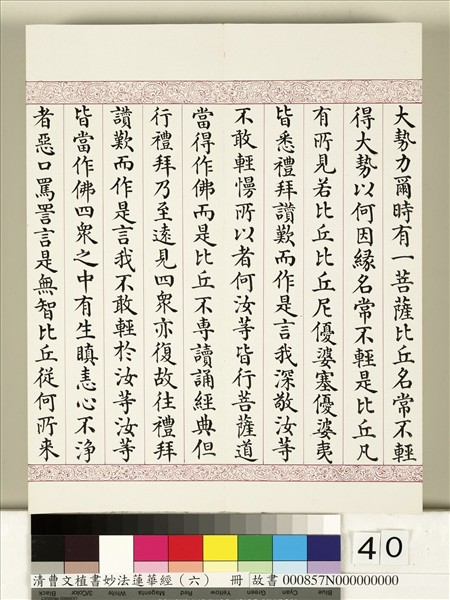 大勢力爾時有一菩薩比丘名常不輕
得大勢以何因緣名常不輕是比丘凡
有所見若比丘比丘尼優婆塞優婆夷
皆悉禮拜讚歎而作是言我深敬汝等
不敢輕慢所以者何汝等皆行菩薩道
當得作佛而是比丘不專讀誦經典但
行禮拜乃至遠見四衆亦復故往禮拜
讚歎而作是言我不敢輕於汝等汝等
皆當作佛四衆之中有生瞋恚心不淨
者惡口罵詈言是無智比丘從何所来
40
Black
3/Color
White
Magenta
Red
Yellow
Green
Cyan
Blue
清曹文植書妙法蓮華經（六） 冊 故書 000857N000000000